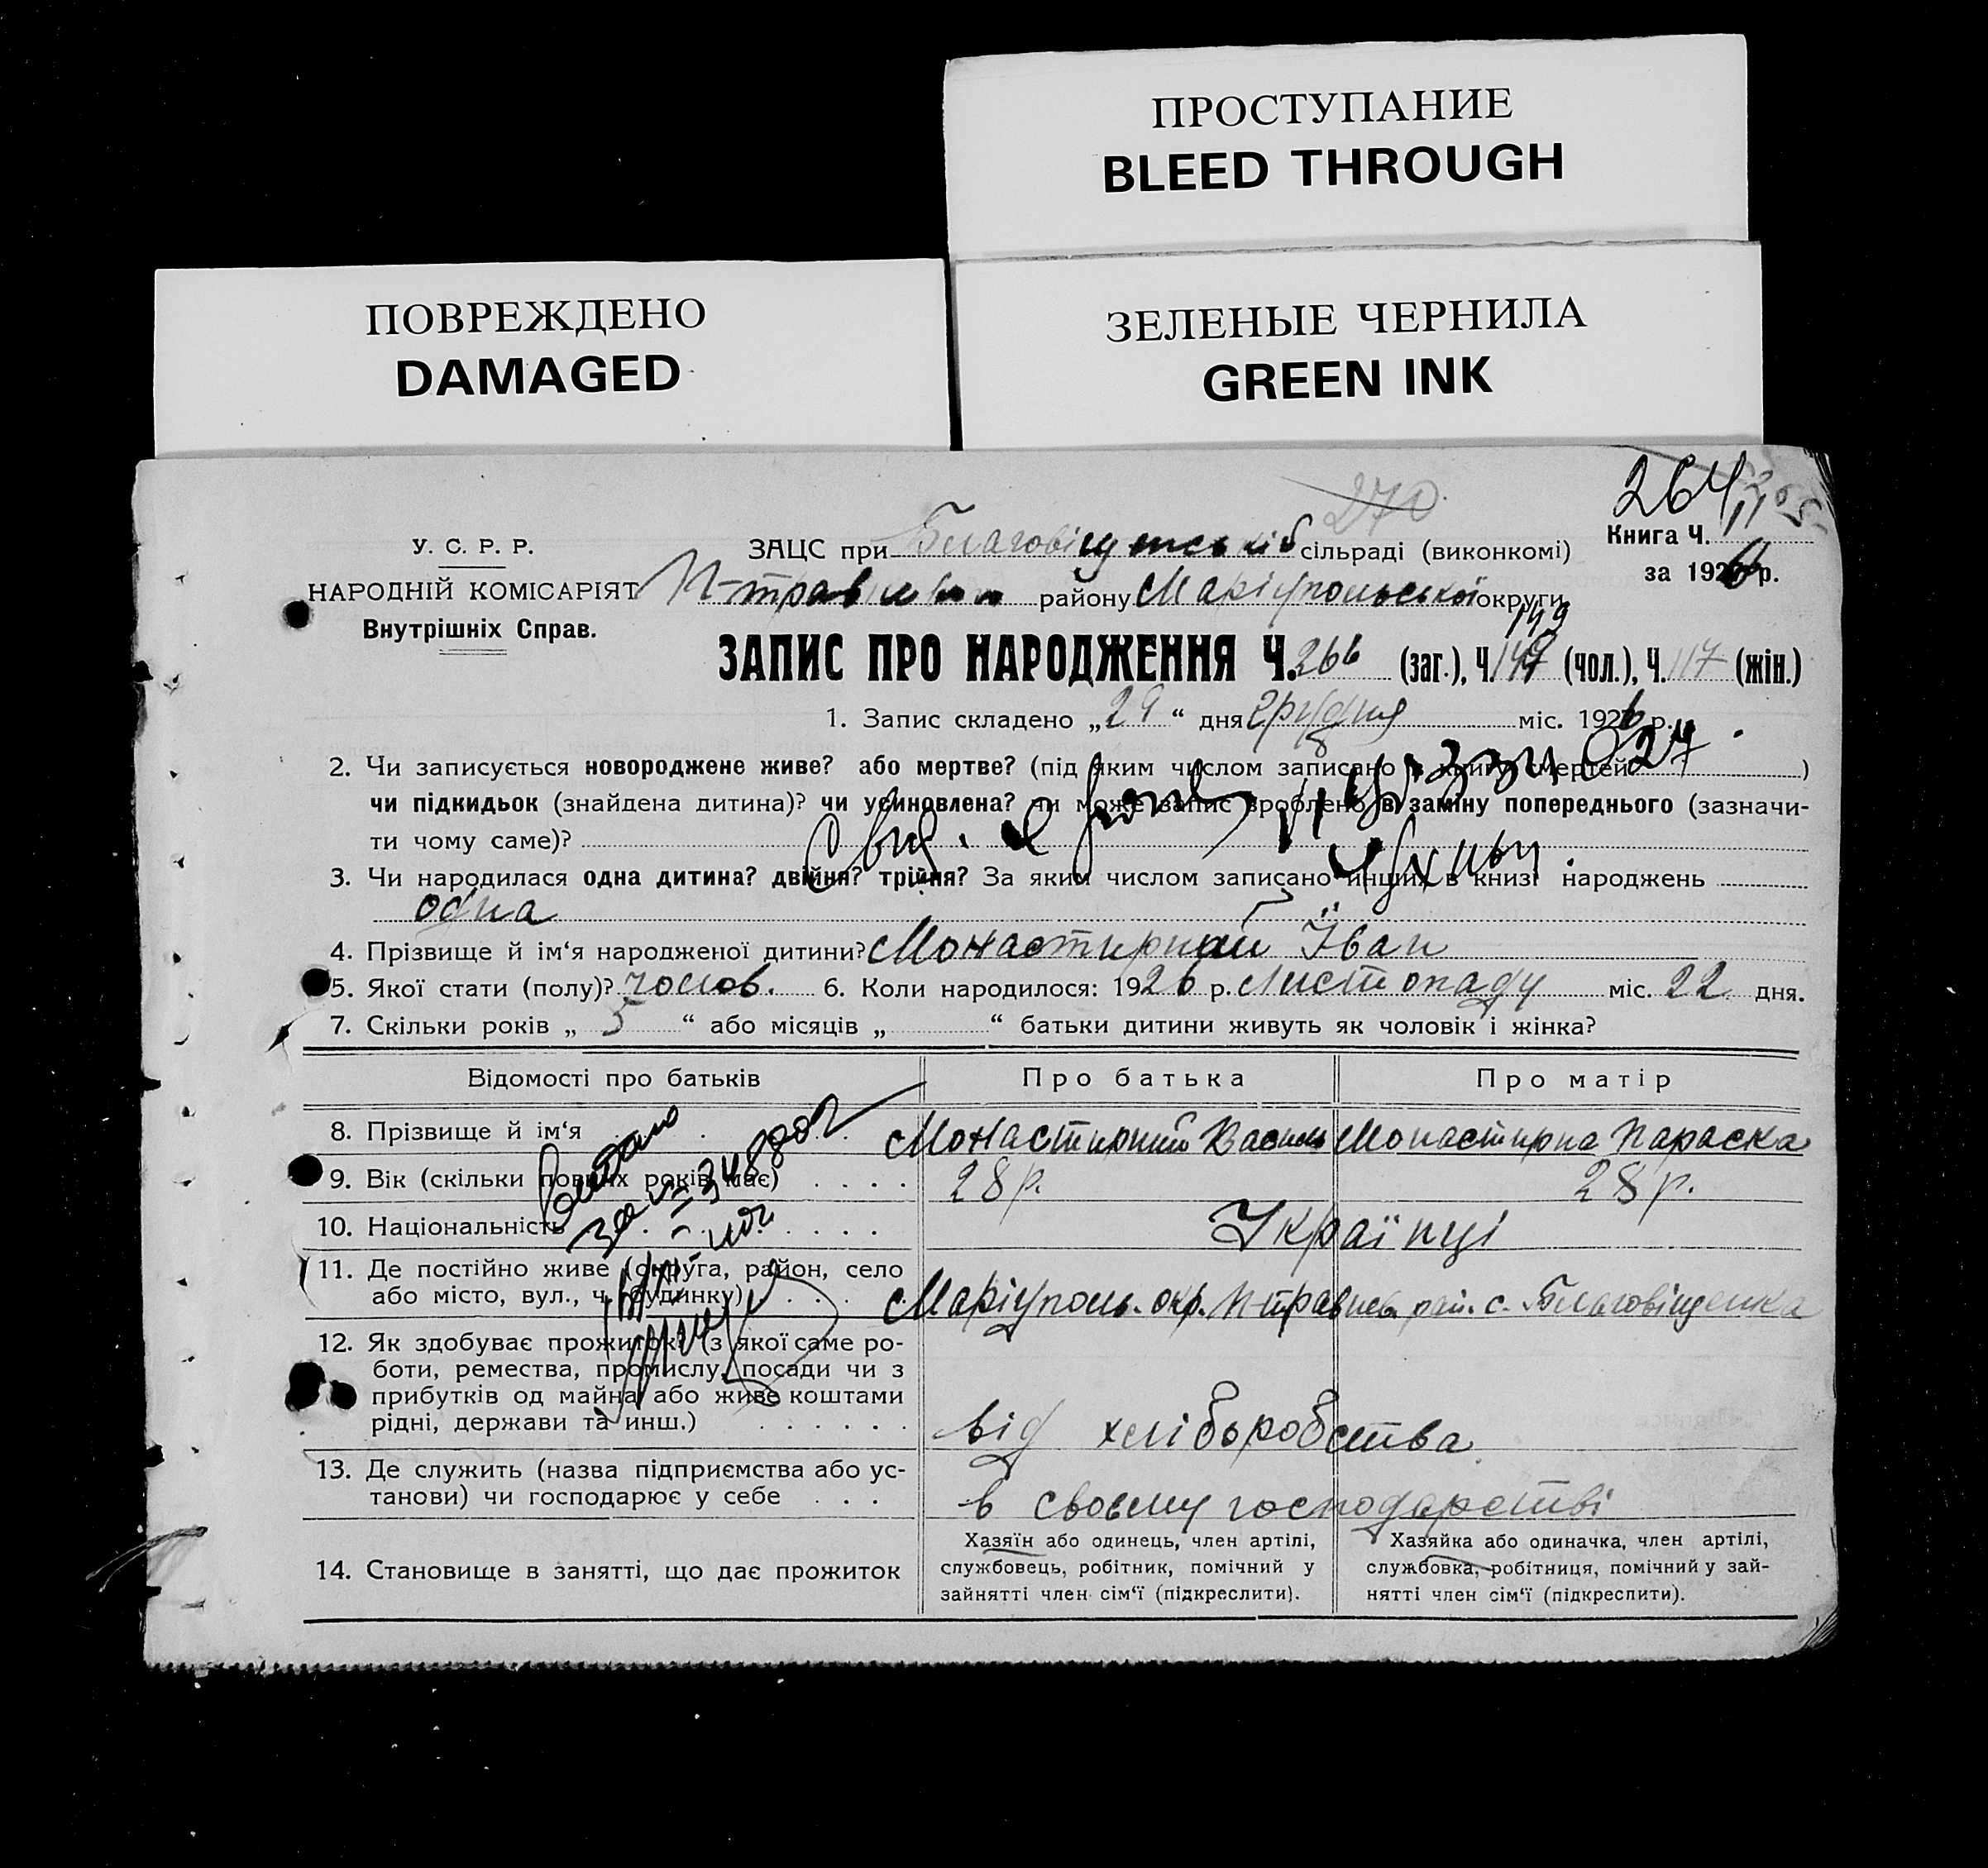 ПРОСТУПАНИЕ
BLEED THROUGH
ПОВРЕЖДЕНО
DAMAGED
ЗЕЛЕНЫЕ ЧЕРНИЛА
GREEN INK
270
264
Книга Ч.
за 1926 р.
У. С. Р. Р.
НАРОДНІЙ КОМІСАРІЯТ
Внутрішніх Справ.
ЗАЦС при Благовіщенській сільраді (виконкомі)
району Маріупольської округи
149
ЗАПИС ПРО НАРОДЖЕННЯ Ч. 266 (заг.), Ч. (чол.), Ч. 117 (жін.)
1. Запис складено „29“ дня грудня міс. 1926 р.
2. Чи записується новороджене живе? або мертве? (під яким числом записано в книгу смертей )
чи підкидьок (знайдена дитина)? чи усиновлена? чи може запис зроблено в заміну попереднього (зазначи-
ти чому саме)?
3. Чи народилася одна дитина? двійня? трійня? За яким числом записано инших в книзі народжень
одна
4. Прізвище й ім‘я народженої дитини? Монастирний Їван
5. Якої стати (полу)? чолов. 6. Коли народилося: 1926 р. Листопаду міс. 22 дня.
7. Скільки років „ 5 “ або місяців „ “ батьки дитини живуть як чоловік і жінка?
Відомості про батьків Про батька Про матір
8. Прізвище й ім‘я Монастирний Василь Монастирна Параска
9. Вік (скільки повних років має) 28 р. 28 р.
10. Національність Українці
11. Де постійно живе (округа, район, село
або місто, вул., ч. будинку) Маріуполь. окр. рай. с. Благовіщенка
12. Як здобуває прожиток? (з якої саме ро-
боти, ремества, промислу, посади чи з
прибутків од майна або живе коштами
рідні, держави та инш.) від хліборобства
13. Де служить (назва підприємства або ус-
танови) чи господарює у себе в своєму господарстві
14. Становище в занятті, що дає прожиток
Хазяїн або одинець, член артілі,
службовець, робітник, помічний у
зайнятті член сім‘ї (підкреслити).
Хазяйка або одиначка, член артілі,
службовка, робітниця, помічний у зай-
нятті член сім‘ї (підкреслити).